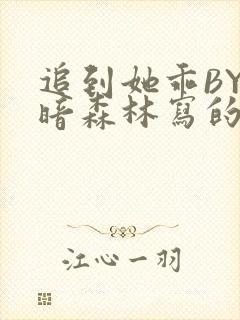 追到她乖BY
暗森林寫的
江心一羽